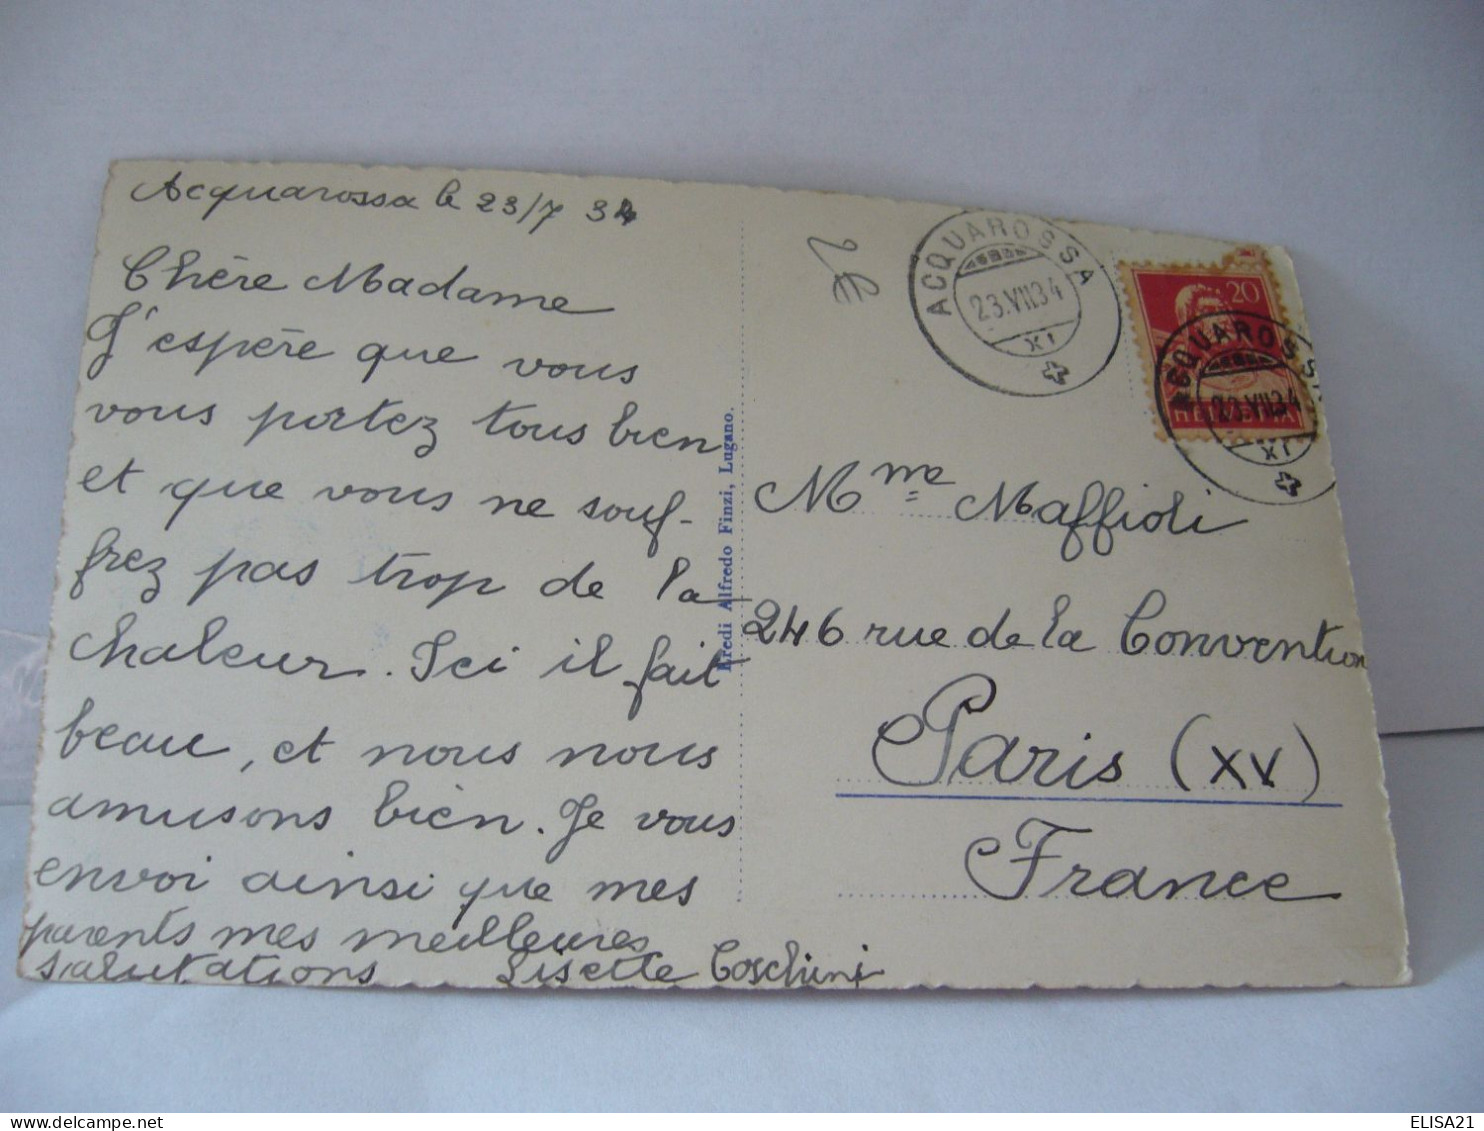 Acquarossa le 23/7 34
Chère Madame
J'espère que vous
vous portez tous bien
et que vous ne souf-
frez pas trop de la
chaleur. Ici il fait
beau, et nous nous
amusons bien. Je vous
envoi ainsi que mes
parents mes meilleures
salutations Lisette Coschini
Eredi Alfredo Finzi, Lugano.
2€
ACQUAROSSA
23.VII34
XI
20
HELVETIA
ACQUAROSSA
23.VII34
XI
Mme Maffioli
246 rue de la Convention
Paris (XV)
France
ELISA21